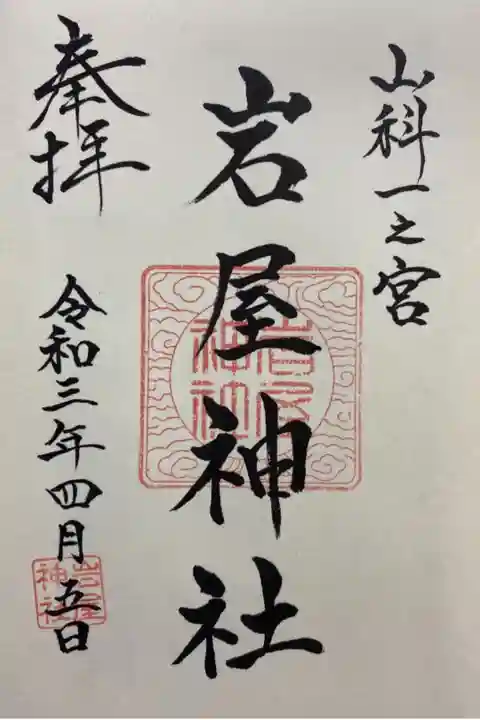 山科一之宮
岩屋神社
岩屋神社
奉拝
令和三年四月五日
岩屋神社